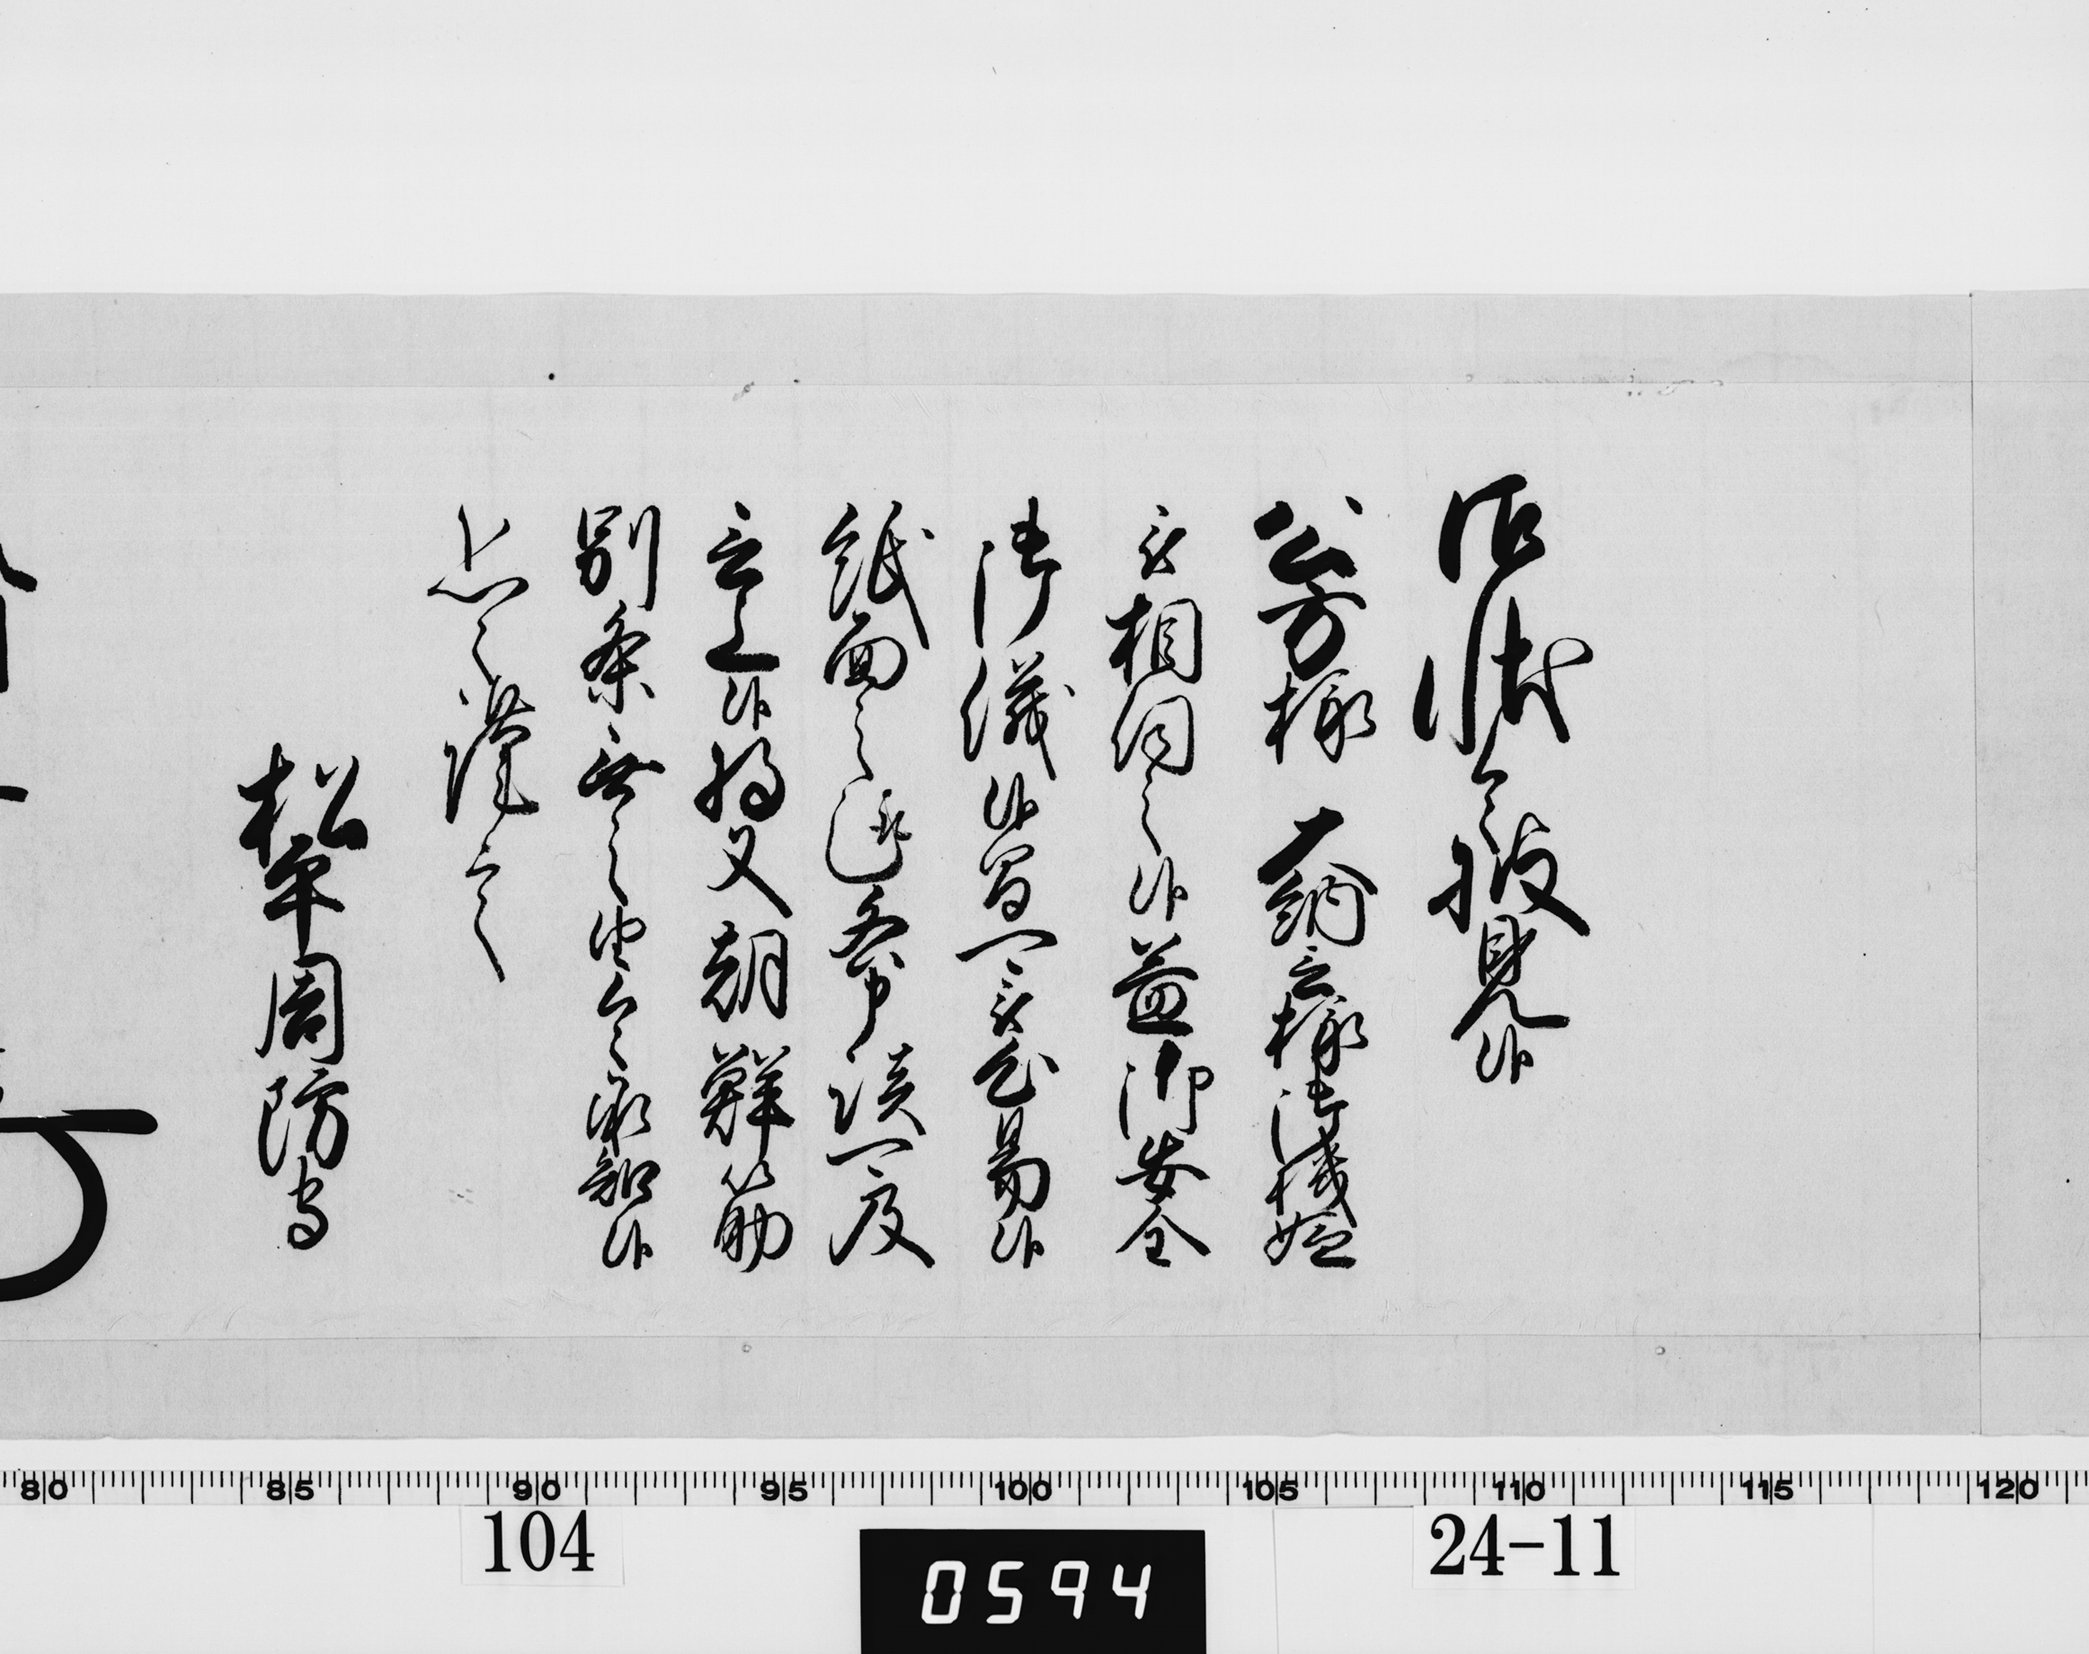 御状令披見候
公方様 大納言様御機嫌
被相伺之候益御安全
御儀候間可被心易候
紙面之趣各申談可及
言上候将又朝鮮筋
別条無之由令承知候
恐々謹言
松平周防守
80 85 90 95 100 105 110 115 120
104
0594
24-11